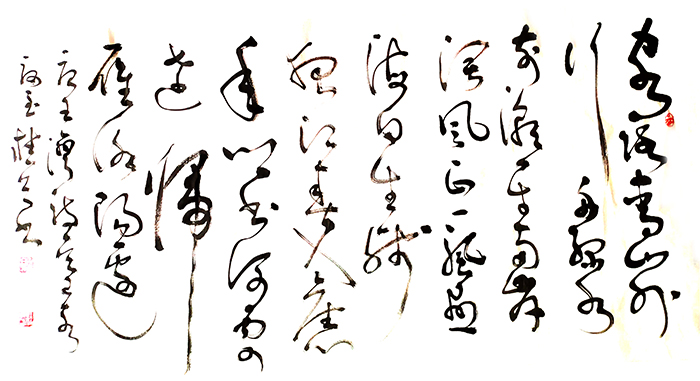 客路青山外
行舟绿水
前潮平两岸
阔风正一帆悬
海日生残
夜江春入旧
年乡书何处
达归
雁洛阳边
王湾诗